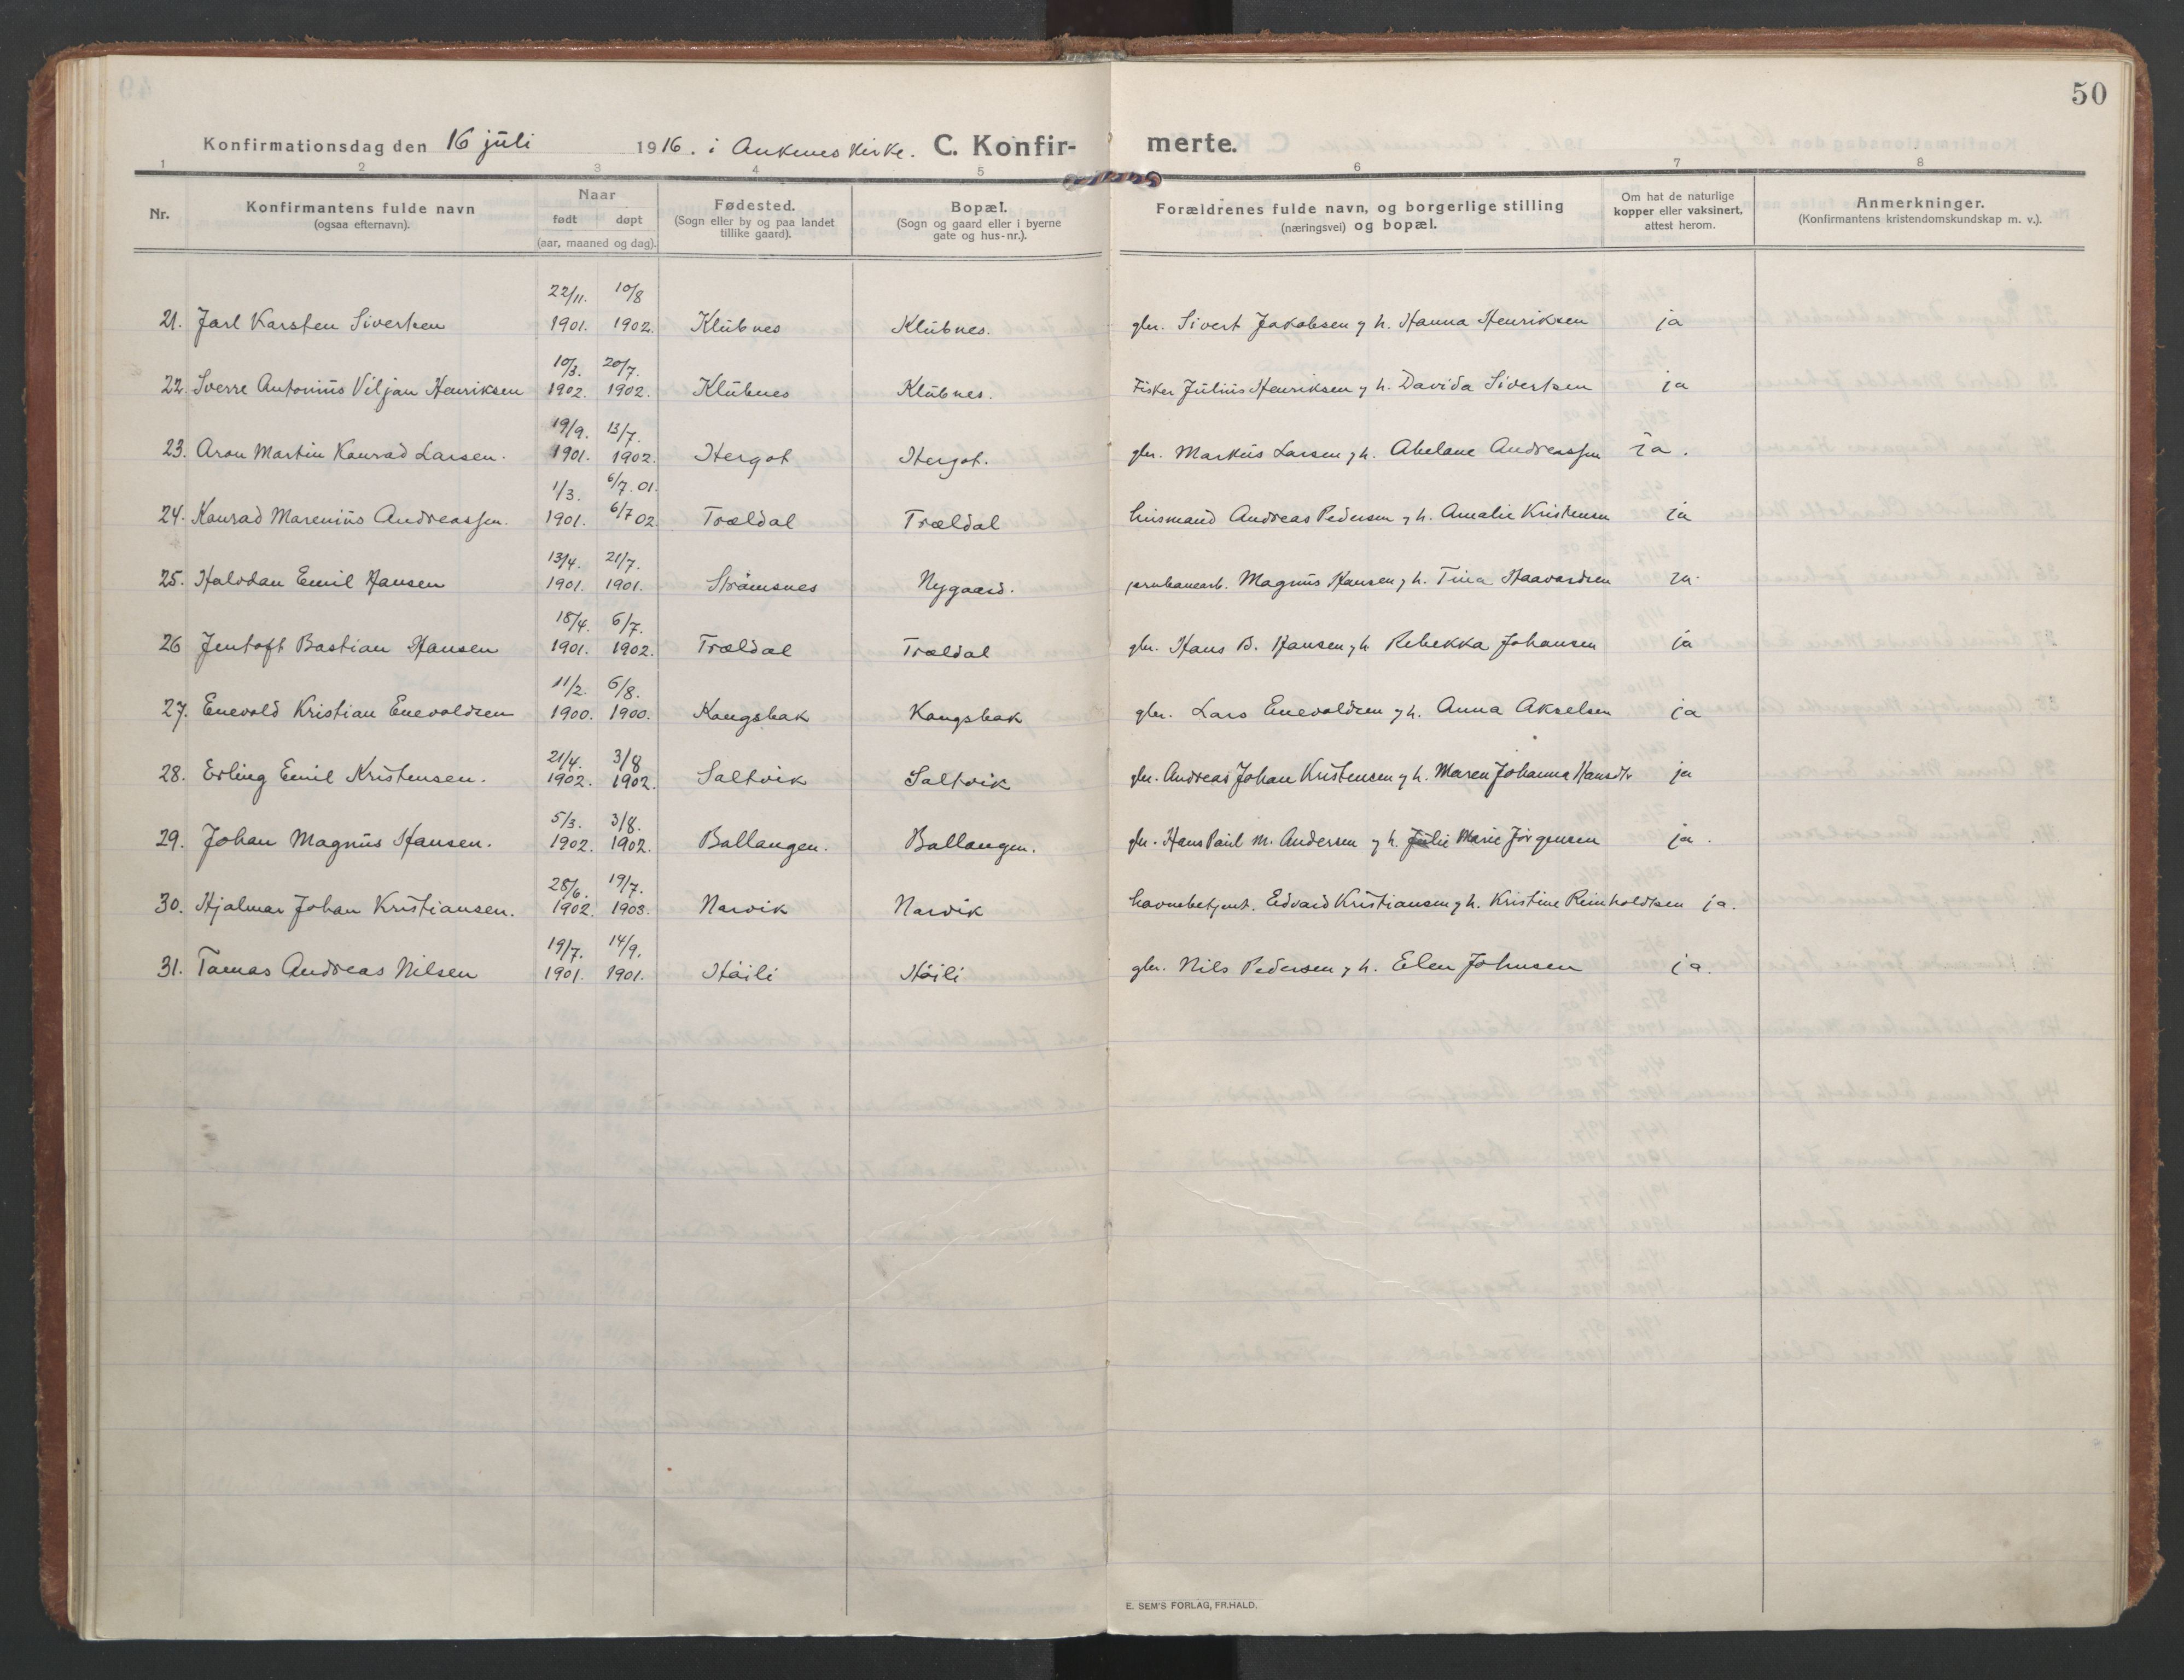 50
Konfirmationsdag den 16 juli 1916. i Ankenes Kirke. C. Konfirmerte.
1 2 3 4 5 6 7 8
Nr. Konfirmantens fulde navn (ogsaa efternavn). Naar født døpt (aar, maaned og dag). Fødested. (Sogn eller by og paa landet tillike gaard). Bopæl. (Sogn og gaard eller i byerne gate og hus-nr.). Forældrenes fulde navn, og borgerlige stilling (næringsvei) og bopæl. Om hat de naturlige kopper eller vaksinert, attest herom. Anmerkninger. (Konfirmantens kristendomskundskap m. v.).
22/11. 10/8
21. Jarl Karsten Sivertsen 1901. 1902. Klubnes Klubnes. gbr. Sivert Jakobsen y h. Hanna Henriksen ja
10/3. 20/7.
22. Sverre Antonius Viljan Henriksen 1902. 1902. Klubnes Klubnes. Fisker Julius Henriksen y h. Davida Sivertsen ja
19/9. 13/7.
23. Aron Martin Konrad Larsen. 1901. 1902. Hergot Hergot. gbr. Markus Larsen y h. Abelane Andreassen ja.
1/3. 6/7.01.
24. Konrad Marenius Andreassen. 1901. 6/7 02 Trældal Trældal husmand Andreas Pedersen y h. Amalie Kristensen ja
13/4. 21/7.
25. Halvdan Emil Hansen 1901. 1901. Strømsnes Nygaard. jernbanearb. Magnus Hansen y h. Tina Haavardsen ja
18/4. 6/7.
26 Jentoft Bastian Hansen 1901. 1902. Trældal Trældal gbr. Hans B. Hansen y h. Rebekka Johansen ja
11/2. 6/8.
27. Enevold Kristian Enevoldsen 1900. 1900. Kongsbak Kongsbak gbr. Lars Enevoldsen y h. Anna Akselsen ja
21/4. 3/8
28. Erling Emil Kristensen. 1902. 1902. Saltvik Saltvik gbr. Andreas Johan Kristensen y h. Maren Johanna Hansdtr ja
5/3. 3/8.
29. Johan Magnus Hansen. 1902. 1902. Ballangen. Ballangen. gbr. Hans Paul M. Andersen y h. Julie Marie Jørgensen ja.
28/6. 19/7.
30. Hjalmar Johan Kristiansen. 1902. 1903. Narvik Narvik havnebetjent. Edvard Kristiansen y h. Kristine Reinholdtsen ja.
19/7. 14/9.
31. Tomas Andreas Nilsen 1901. 1901. Håili Håili gbr. Nils Pedersen y h. Elen Johnsen ja.
E. SEM'S FORLAG, FR.HALD.